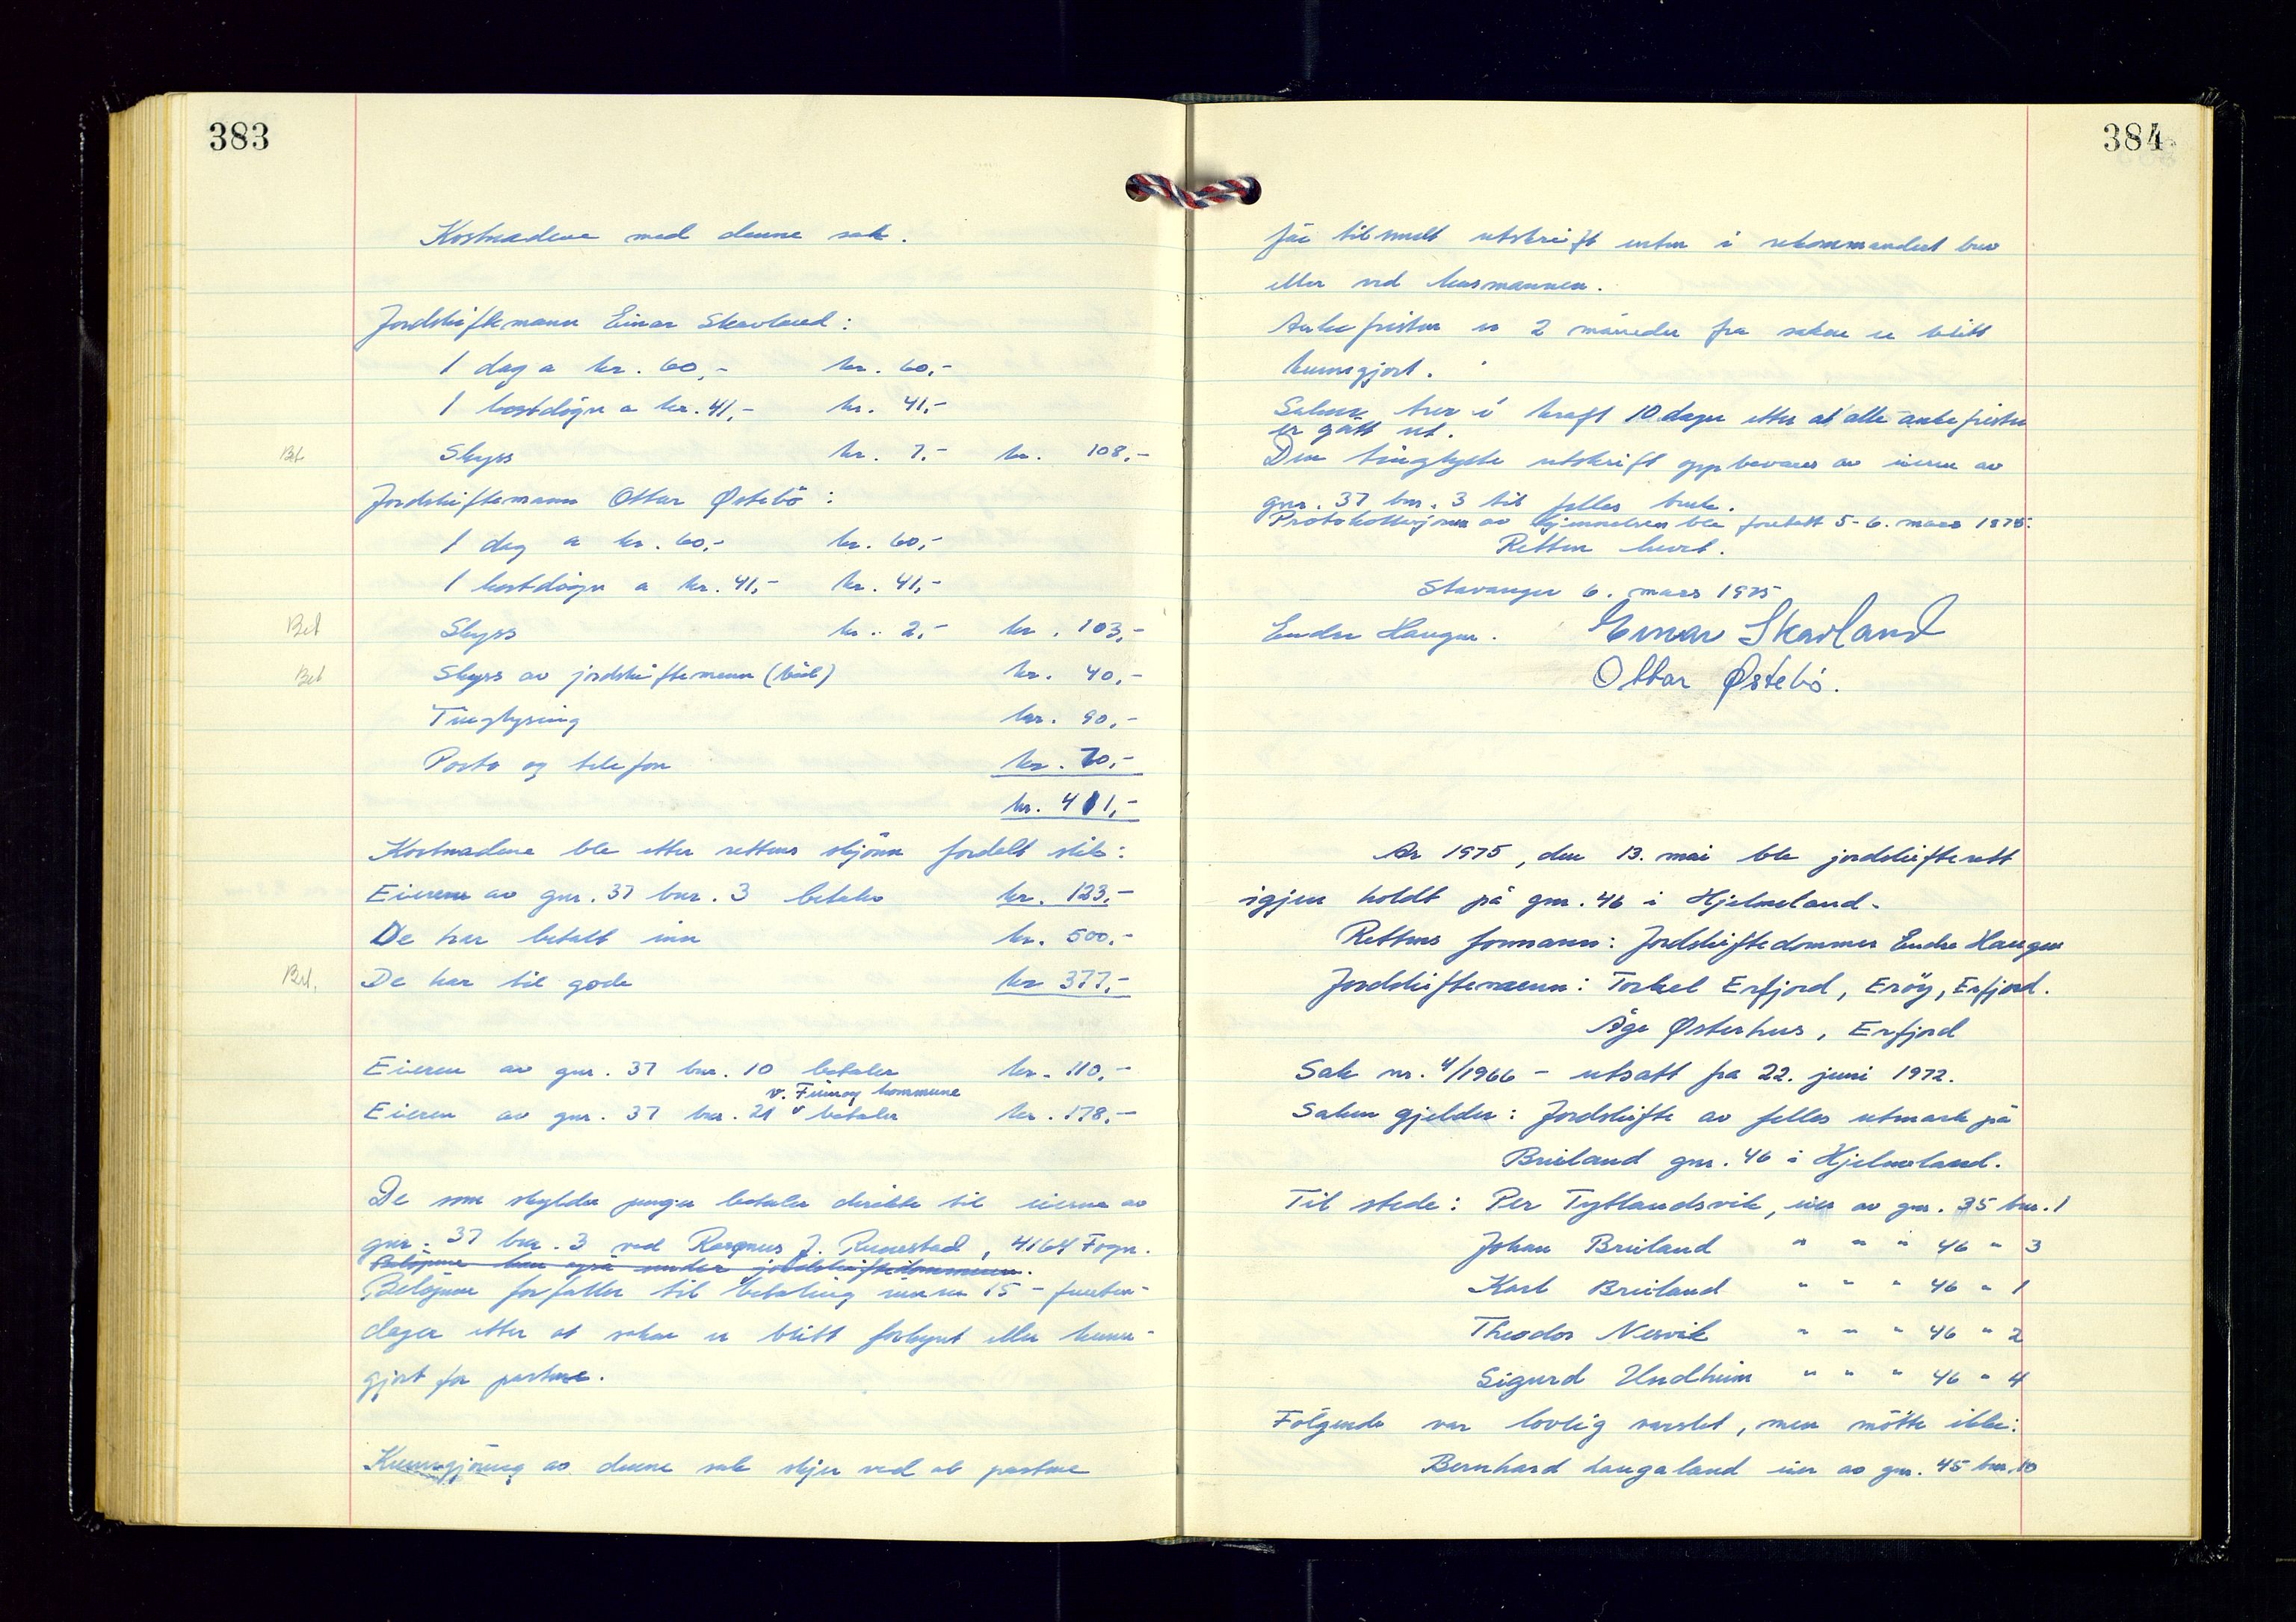 383
Kostnadene med denne sak.
Jordskiftemann Einar Skavland:
1 dag a kr. 60,- kr. 60,-
1 kostdögn a kr. 41,- kr. 41,-
Bet Skyss kr. 7,- kr. 108,-
Jordskiftemann Ottar Østebö:
1 dag a kr. 60,- kr. 60,-
1 kostdögn a kr. 41,- kr. 41,-
Bet Skyss kr. 2,- kr. 103,-
Bet Skyss av jordskiftemenn (bil) kr. 40,-
Tinglysing kr. 90,-
Porto og telefon kr. 70,-
kr. 411,-
Kostnadene ble etter rettens skjönn fordelt slik:
Eierene av gnr. 37 bnr. 3 betaler kr. 123,-
De har betalt inn kr. 500,-
Bet. De har til gode kr 377,-
Eieren av gnr. 37 bnr. 10 betaler kr. 110,-
v. Finnøy kommune
Eieren av gnr. 37 bnr. 21 v betaler kr. 178,-
De som skylder penger betaler direkte til eierne av
gnr. 37 bnr. 3 ved Rasmus J. Rennestad, 4164 Fogn.
Belöpene kan også sendes jordskiftedommeren.
Belöpene forfaller til betaling innen 15 - femten-
dager etter at saken er blitt forkynt eller kunn-
gjort for partene.
Kunngjöring av denne sak skjer ved at partene
384
får tilsendt utskrift enten i rekommandert brev
eller ved lensmannen.
Ankefristen er 2 måneder fra saken er blitt
kunngjort.
Saken trer i kraft 10 dager etter at alle ankefrister
er gått ut.
Den tinglyste utskrift oppbevares av eieren av
gnr. 37 bnr. 3 til felles bruk.
Protokollasjonen av kjennelsen ble foretatt 5-6. mars 1975.
Retten hevet.
Stavanger 6. mars 1975
Endre Haugen. Einar Skavland
Ottar Østebö.
År 1975, den 13. mai ble jordskifterett
igjen holdt på gnr. 46 i Hjelmeland.
Rettens formann: Jordskiftedommer Endre Haugen
Jordskiftemenn: Torkel Erfjord, Eröy, Erfjord.
Åge Østerhus, Erfjord
Sak nr. 4/1966 - utsatt fra 22. juni 1972.
Saken gjelder: Jordskifte av felles utmark på
Breiland gnr. 46 i Hjelmeland.
Til stede: Per Tytlandsvik, eier av gnr. 35 bnr. 1
Johan Breiland " " " 46 " 3
Karl Breiland " " " 46 " 1
Theodor Nesvik " " " 46 " 2
Sigurd Undheim " " " 46 " 4
Fölgende var lovlig varslet, men mötte ikke:
Bernhard Laugaland eier av gnr. 45 bnr. 10